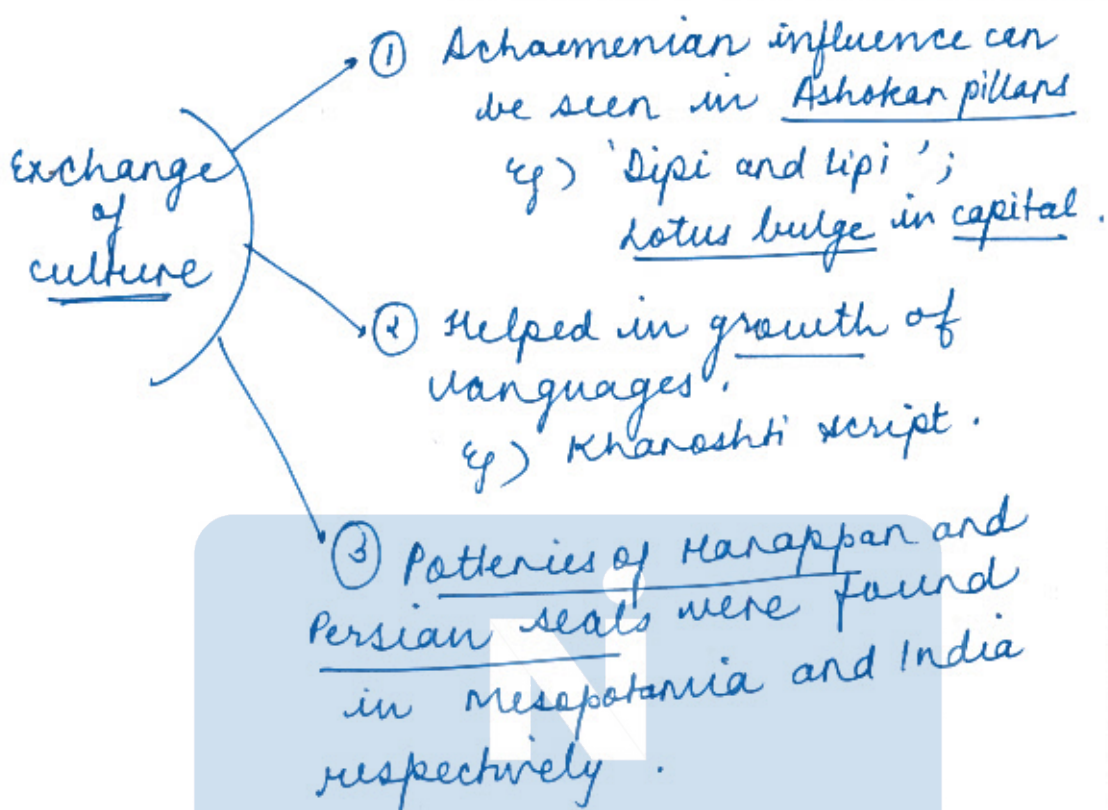 Exchange
of
culture
① Achaemenian influence can
be seen in Ashokan pillars
eg) 'Dipi and lipi';
Lotus bulge in capital.
② Helped in growth of
languages.
eg) Kharoshti script.
③ Potteries of Harappan and
Persian seals were found
in Mesopotamia and India
respectively.